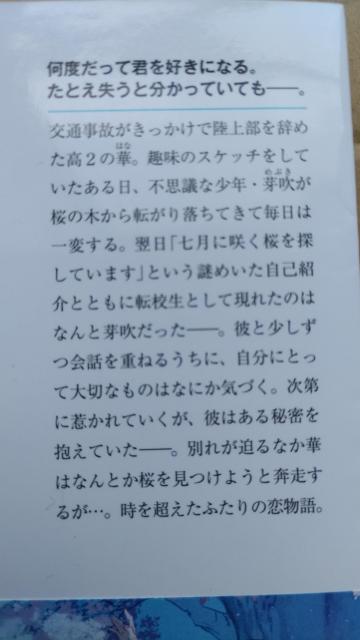 何度だって君を好きになる。
たとえ失うと分かっていても──。
交通事故がきっかけで陸上部を辞め
はな
た高２の華。趣味のスケッチをして
めぶき
いたある日、不思議な少年・芽吹が
桜の木から転がり落ちてきて毎日は
一変する。翌日「七月に咲く桜を探
しています」という謎めいた自己紹
介とともに転校生として現れたのは
なんと芽吹だった──。彼と少しず
つ会話を重ねるうちに、自分にとっ
て大切なものはなにか気づく。次第
に惹かれていくが、彼はある秘密を
抱えていた──。別れが迫るなか華
はなんとか桜を見つけようと奔走す
るが…。時を超えたふたりの恋物語。